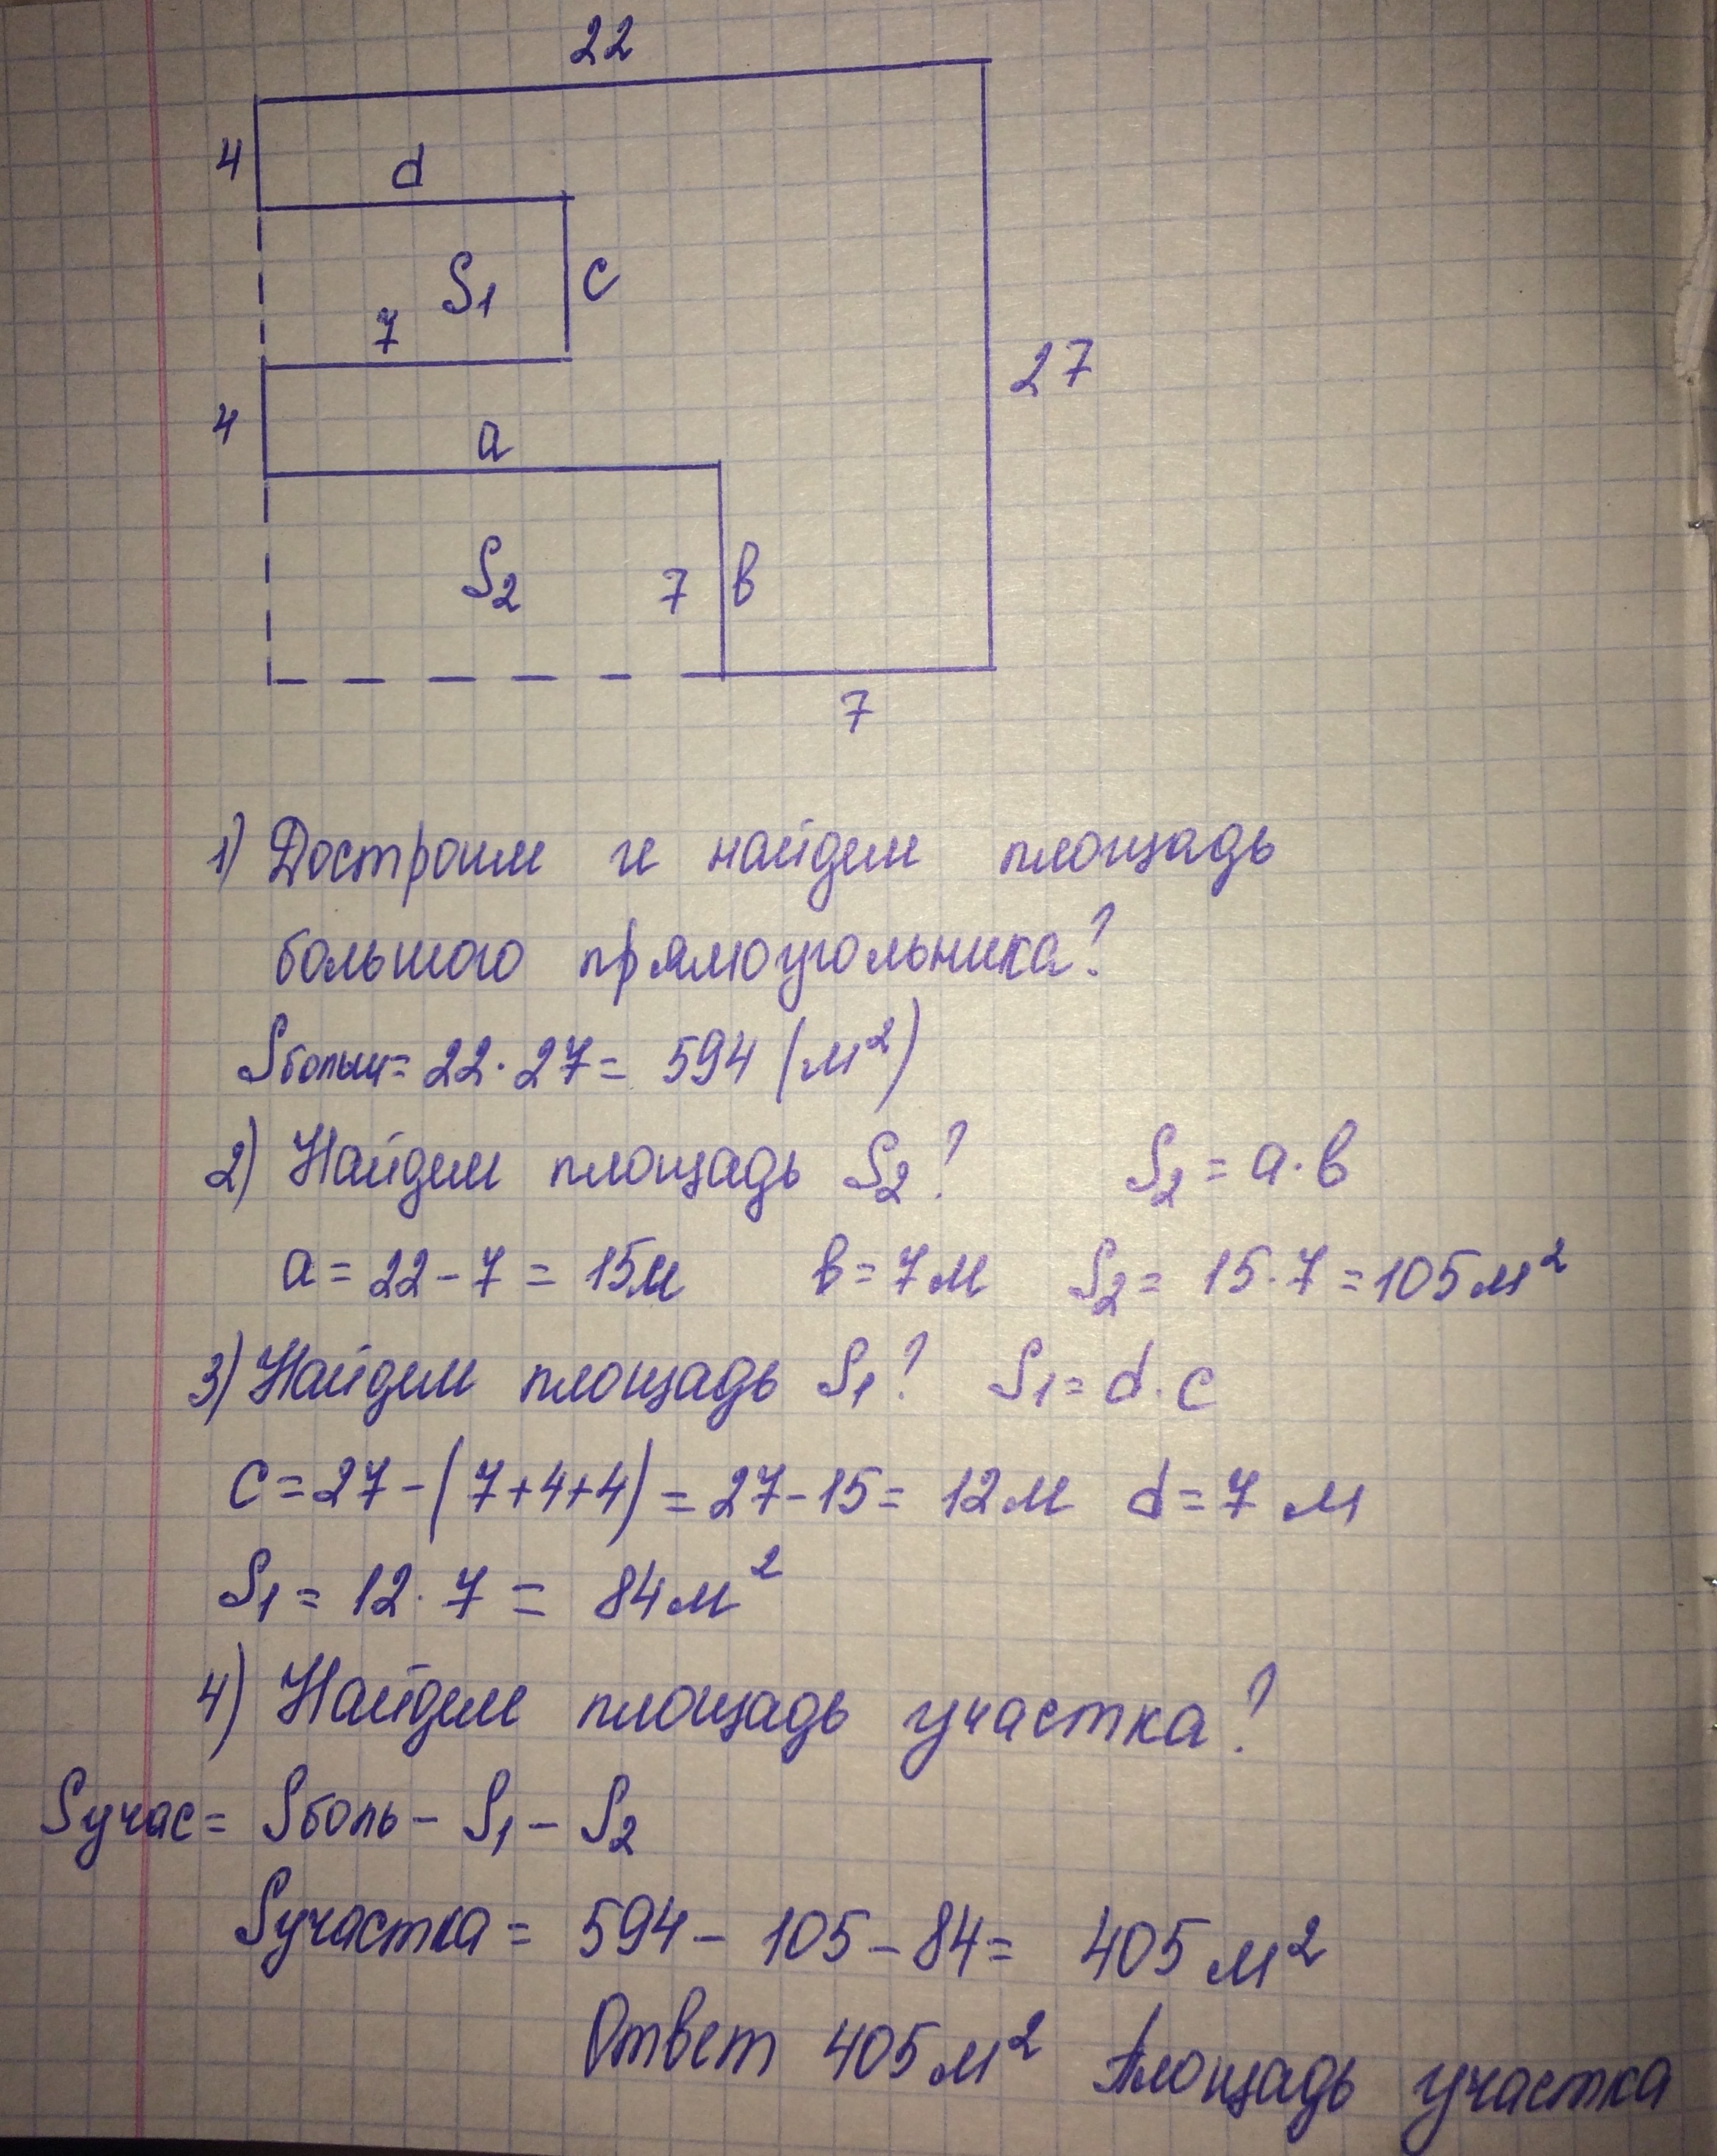 22
4
d
S₁
c
7
27
4
a
S₂
7
в
7
1) Достроим и найдем площадь
большого прямоугольника?
Sбольш= 22·27= 594 (м²)
2) Найдем площадь S₂? S₂ = a·в
a = 22 - 7 = 15м в = 7м S₂ = 15·7 = 105м²
3) Найдем площадь S₁? S₁ = d·c
c = 27 - (7+4+4) = 27-15 = 12м d = 7 м
S₁ = 12·7 = 84м²
4) Найдем площадь участка?
Sучас = Sболь - S₁ - S₂
Sучастка = 594 - 105 - 84 = 405 м²
Ответ 405м² площадь участка